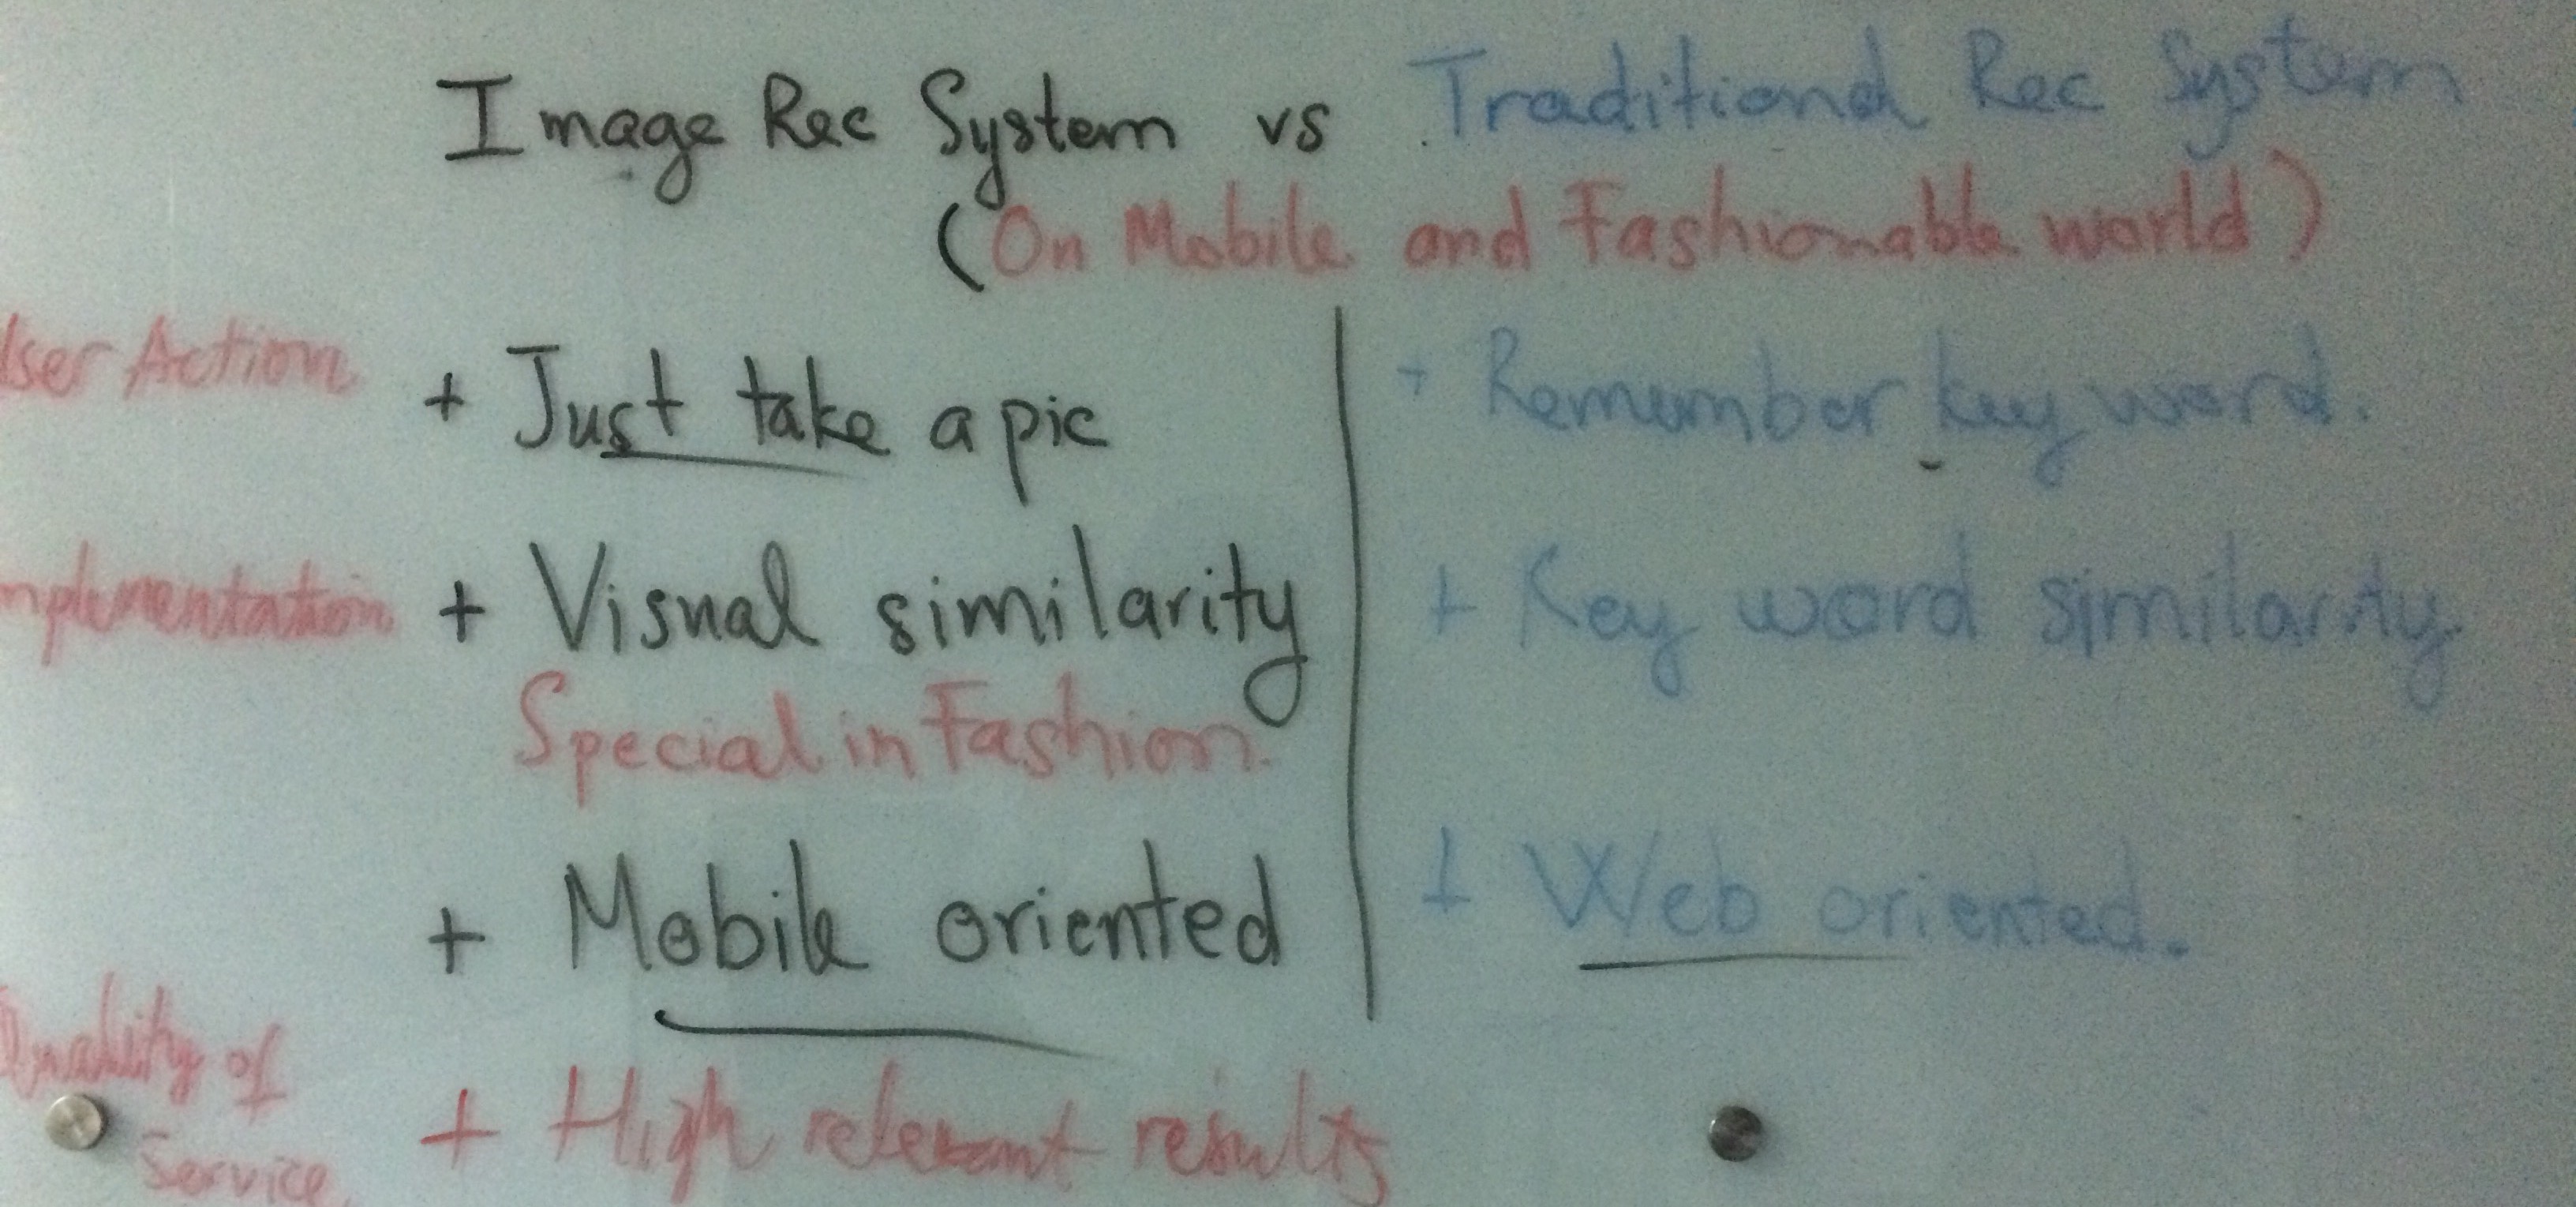 Image Rec System vs Traditional Rec System
(On Mobile and Fashionable world)
User Action + Just take a pic + Remember key word.
mplementation + Visual similarity + Key word similarity.
Special in Fashion.
+ Mobile oriented + Web oriented.
Quality of
Service. + High relevant results